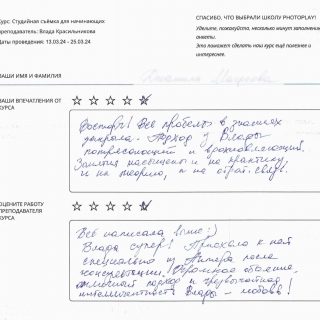 Курс: Студийная съёмка для начинающих
преподаватель: Влада Красильникова
Даты проведения: 13.03.24 - 25.03.24
СПАСИБО, ЧТО ВЫБРАЛИ ШКОЛУ PHOTOPLAY!
Уделите, пожалуйста, несколько минут заполнению
анкеты.
Это поможет сделать наш курс ещё полезнее и
интереснее.
ВАШИ ИМЯ И ФАМИЛИЯ
ВАШИ ВПЕЧАТЛЕНИЯ ОТ
КУРСА
Восторг! Все пробелы в знаниях
закрыла. Подход у Влады
потрясающий и вдохновляющий.
Занятия насыщены и на практику,
и на теорию, и на обрат. связь.
ОЦЕНИТЕ РАБОТУ
ПРЕПОДАВАТЕЛЯ
КУРСА
Всё написала выше :)
Влада супер! Приехала к ней
специально из Питера после
консультации. Огромное обаяние,
отличный подход и чрезвычайная
интеллигентность. Влада - любовь!